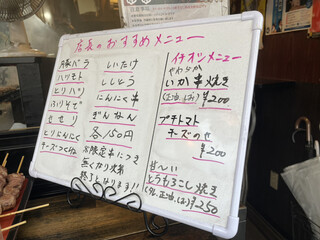 店長のおすすめメニュー
豚バラ
ハツモト
とりハツ
ふりそで
せせり
とりにんにく
チーズつくね
しいたけ
ししとう
にんにく串
ぎんなん
各150円
※限定串につき
無くなり次第
終了となります!!
イチオシメニュー
やわらか
いか串焼き
¥200
プチトマト
チーズのせ
¥200
甘〜い
とうもろこし焼き
¥250